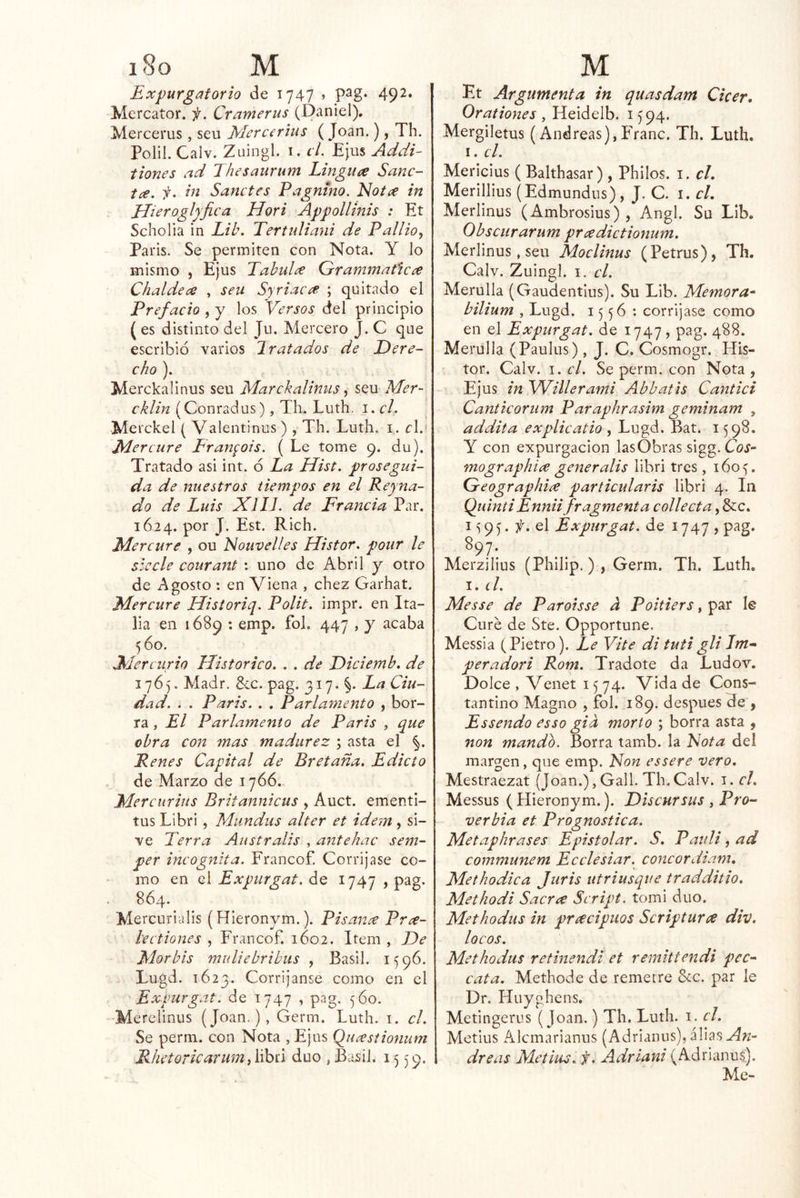 180 M
Expurgatorio de 1747 , pag. 492.
Mercator. ℣. Cramerus (Daniel).
Mercerus , seu Mercerius ( Joan. ) , Th.
Polil. Calv. Zuingl. 1. cl. Ejus Addi-
tiones ad Thesaurum Linguæ Sanc-
tæ. ℣. in Sanctes Pagnino. Notæ in
Hieroglyfica Hori Appollinis : Et
Scholia in Lib. Tertuliani de Pallio,
Paris. Se permiten con Nota. Y lo
mismo , Ejus Tabulæ Grammaticæ
Chaldeæ , seu Syriacæ ; quitado el
Prefacio , y los Versos del principio
( es distinto del Ju. Mercero J. C que
escribió varios Tratados de Dere-
cho ).
Merckalinus seu Marckalinus, seu Mer-
cklin (Conradus) , Th. Luth. 1. cl.
Merckel ( Valentinus ) , Th. Luth. 1. cl.
Mercure François. ( Le tome 9. du).
Tratado asi int. ó La Hist. prosegui-
da de nuestros tiempos en el Reyna-
do de Luis XIII. de Francia Par.
1624. por J. Est. Rich.
Mercure , ou Nouvelles Histor. pour le
siecle courant : uno de Abril y otro
de Agosto : en Viena , chez Garhat.
Mercure Historiq. Polit. impr. en Ita-
lia en 1689 : emp. fol. 447 , y acaba
560.
Mercurio Historico. . . de Diciemb. de
1765. Madr. &c. pag. 317. §. La Ciu-
dad. . . Paris. . . Parlamento , bor-
ra , El Parlamento de Paris , que
obra con mas madurez ; asta el §.
Renes Capital de Bretaña. Edicto
de Marzo de 1766.
Mercurius Britannicus , Auct. ementi-
tus Libri , Mundus alter et idem , si-
ve Terra Australis , antehac sem-
per incognita. Francof. Corrijase co-
mo en el Expurgat. de 1747 , pag.
864.
Mercurialis ( Hieronym. ). Pisanæ Præ-
lectiones , Francof. 1602. Item , De
Morbis muliebribus , Basil. 1596.
Lugd. 1623. Corrijanse como en el
Expurgat. de 1747 , pag. 560.
Merelinus (Joan. ) , Germ. Luth. 1. cl.
Se perm. con Nota , Ejus Quæstionum
Rhetoricarum, libri duo , Basil. 1559.
M
Et Argumenta in quasdam Cicer.
Orationes , Heidelb. 1594.
Mergiletus ( Andreas), Franc. Th. Luth.
1. cl.
Mericius ( Balthasar ) , Philos. 1. cl.
Merillius (Edmundus), J. C. 1. cl.
Merlinus (Ambrosius) , Angl. Su Lib.
Obscurarum prædictionum.
Merlinus , seu Moclinus (Petrus), Th.
Calv. Zuingl. 1. cl.
Merulla (Gaudentius). Su Lib. Memora-
bilium , Lugd. 1556 : corrijase como
en el Expurgat. de 1747, pag. 488.
Merulla (Paulus) , J. C. Cosmogr. His-
tor. Calv. 1. cl. Se perm. con Nota ,
Ejus in Willerami Abbatis Cantici
Canticorum Paraphrasim geminam ,
addita explicatio , Lugd. Bat. 1598.
Y con expurgacion las Obras sigg. Cos-
mographiæ generalis libri tres , 1605.
Geographiæ particularis libri 4. In
Quinti Ennii fragmenta collecta, &c.
1595. ℣. el Expurgat. de 1747 , pag.
897.
Merzilius (Philip. ) , Germ. Th. Luth.
1. cl.
Messe de Paroisse à Poitiers, par le
Curè de Ste. Opportune.
Messia (Pietro). Le Vite di tuti gli Im-
peradori Rom. Tradote da Ludov.
Dolce , Venet 1574. Vida de Cons-
tantino Magno , fol. 189. despues de ,
Essendo esso già morto ; borra asta ,
non mandò. Borra tamb. la Nota del
margen, que emp. Non essere vero.
Mestraezat (Joan.), Gall. Th. Calv. 1. cl.
Messus ( Hieronym. ). Discursus , Pro-
verbia et Prognostica.
Metaphrases Epistolar. S. Pauli , ad
communem Ecclesiar. concordiam.
Methodica Juris utriusque tradditio.
Methodi Sacræ Script. tomi duo.
Methodus in præcipuos Scripturæ div.
locos.
Methodus retinendi et remittendi pec-
cata. Methode de remetre &c. par le
Dr. Huyghens.
Metingerus ( Joan. ) Th. Luth. 1. cl.
Metius Alcmarianus (Adrianus), álias An-
dreas Metius. ℣. Adriani (Adrianus).
Me-